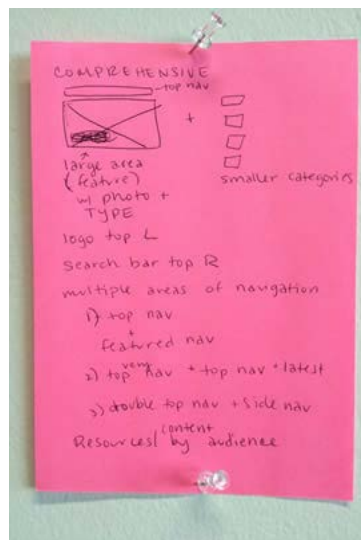 COMPREHENSIVE
top nav
+
large area
(feature)
w/ photo +
TYPE
smaller categories
logo top L
search bar top R
multiple areas of navigation
1) top nav
+
featured nav
2) top very nav + top nav + latest
3) double top nav + side nav
Resources/content by audience